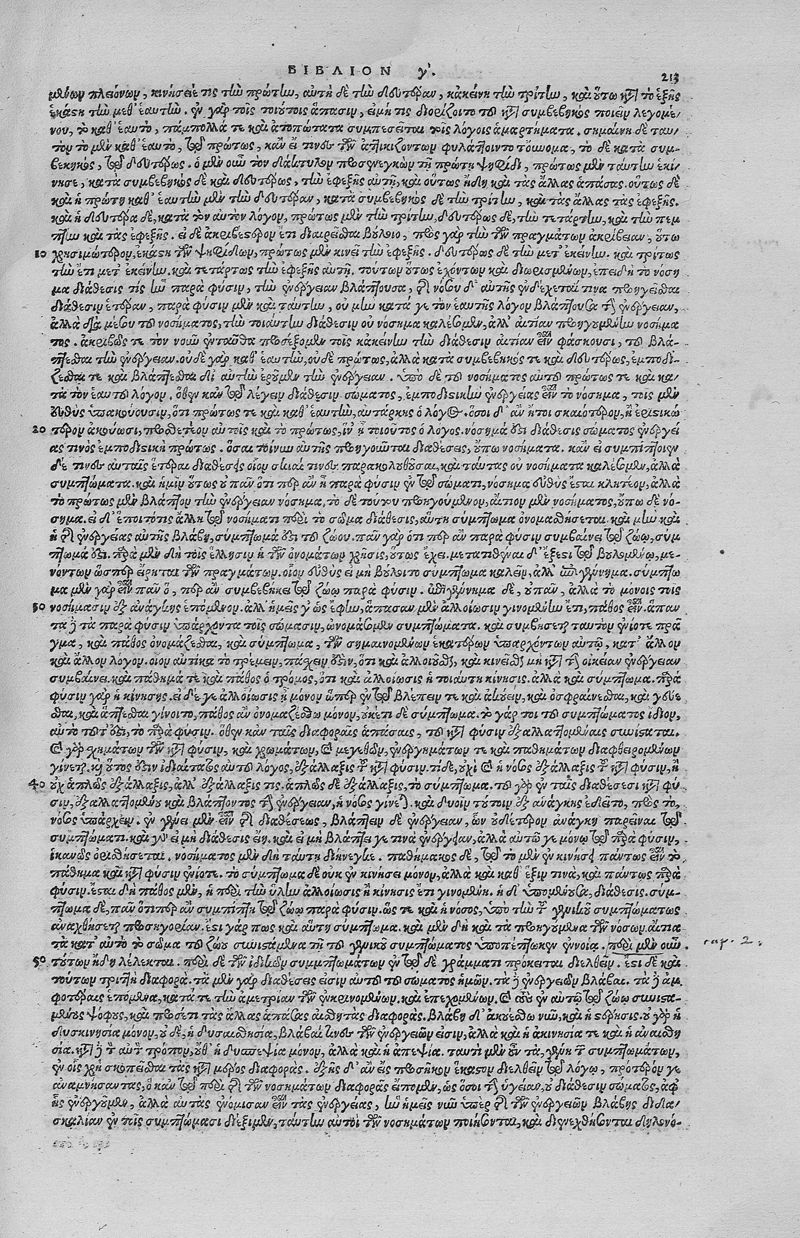 ΒΙΒΛΙΟΝ γ'. 213
μένων πλειόνων, κινήσειέ τις τὴν πρώτην, αὐτὴ δὲ τὴν δευτέραν, κἀκείνη τὴν τρίτην, καὶ οὕτω κατὰ τὸ ἑξῆς
ἑκάστη τὴν μεθ' ἑαυτήν. ἐν γὰρ τοῖς τοιούτοις ἅπασιν, εἰ μή τις διορίζοιτο τοῦ κατὰ συμβεβηκὸς ποιεῖν λεγομέ-
νου, τὸ καθ' ἑαυτὸ, πάμπολλά τε καὶ ἀτοπώτατα συμπεσεῖται τοῖς λόγοις ἁμαρτήματα. σημαίνει δὲ ταυ-
τὸν τὸ μὲν καθ' ἑαυτὸ, τῷ πρώτως, κἂν εἴ τινων τῶν ἀττικιζόντων φυλάττοιντο τοὔνομα, τὸ δὲ κατὰ συμ-
βεβηκὸς, τῷ δευτέρως. ὁ μὲν οὖν τὸν δάκτυλον προσενεγκὼν τῇ πρώτῃ ψηφῖδι, πρώτως μὲν ταύτην ἐκί-
νησε, κατὰ συμβεβηκὸς δὲ καὶ δευτέρως, τὴν ἐφεξῆς αὐτῇ, καὶ οὕτως ἤδη καὶ τὰς ἄλλας ἁπάσας. οὕτως δὲ
καὶ ἡ πρώτη καθ' ἑαυτὴν μὲν τὴν δευτέραν, κατὰ συμβεβηκὸς δὲ τὴν τρίτην, καὶ τὰς ἄλλας τὰς ἐφεξῆς.
καὶ ἡ δευτέρα δὲ, κατὰ τὸν αὐτὸν λόγον, πρώτως μὲν τὴν τρίτην, δευτέρως δὲ, τὴν τετάρτην, καὶ τὴν πέμ-
πτην καὶ τὰς ἐφεξῆς. εἰ δὲ ἀκριβέστερον ἔτι διαιρεῖσθαι βούλοιο, πρὸς γὰρ τὴν τῶν πραγμάτων ἀκρίβειαν, οὕτω
10 χρησιμώτερον, ἑκάστη τῶν ψηφίδων, πρώτως μὲν κινεῖ τὴν ἐφεξῆς. δευτέρως δὲ τὴν μετ' ἐκείνην. καὶ τρίτως
τὴν ἔτι μετ' ἐκείνην. καὶ τετάρτως τὴν ἐφεξῆς αὐτῇ. τούτων οὕτως ἐχόντων καὶ διωρισμένων, ἐπειδὴ τὸ νόση
μα διάθεσίς τις ἦν παρὰ φύσιν, τὴν ἐνέργειαν βλάπτουσα, εἰ νοσοῦ δ' αὐτῆς ἐνδέχεταί τινα προηγεῖσθαι
διάθεσιν ἑτέραν, παρὰ φύσιν μὲν καὶ ταύτην, οὐ μὴν κατά γε τὸν ἑαυτῆς λόγον βλάπτουσαν τὴν ἐνέργειαν,
ἀλλὰ διὰ μέσου τοῦ νοσήματος, τὴν τοιαύτην διάθεσιν οὐ νόσημα καλέσομεν, ἀλλ' αἰτίαν προηγουμένην νοσήμα
τος. ἀκριβῶς τε τὸν νοῦν ἐνταῦθα προσέξομεν τοῖς κἀκείνην τὴν διάθεσιν αἰτίαν εἶναι φάσκουσι, τοῦ βλά-
πτεσθαι τὴν ἐνέργειαν. οὐδὲ γὰρ καθ' ἑαυτὴν, οὐδὲ πρώτως, ἀλλὰ κατὰ συμβεβηκός τε καὶ δευτέρως, ἐμποδί-
ζεσθαί τε καὶ βλάπτεσθαι δι' αὐτὴν ἐροῦμεν τὴν ἐνέργειαν. ὑπὸ δὲ τοῦ νοσήματος αὐτοῦ πρώτως τε καὶ κα-
τὰ τὸν ἑαυτοῦ λόγον. ὅθεν κἂν τῷ λέγειν διάθεσιν σώματος, ἐμποδιστικὴν ἐνεργείας εἶναι τὸ νόσημα, τοῖς μὲν
εὐθὺς ὑπακούουσιν, ὅτι πρώτως τε καὶ καθ' ἑαυτὴν, αὐτάρκης ὁ λόγος. ὅσοι δ' ἂν ἤτοι σκαιότερον, ἢ ἐριστικώ
20 τερον ἀκούωσι, προσθετέον αὐτοῖς καὶ τὸ πρώτως, ἵν' ᾖ τοιοῦτος ὁ λόγος. νόσημά ἐστι διάθεσις σώματος ἐνεργεί
ας τινὸς ἐμποδιστικὴ πρώτως. ὅσαι τοίνυν αὐτῆς προηγοῦνται διαθέσεις, οὔπω νοσήματα. κἂν εἰ συμπίπτοιεν
δέ τινες αὐταῖς ἕτεραι διαθέσεις οἷον σκιαί τινες παρακολουθοῦσαι, καὶ ταύτας οὐ νοσήματα καλέσομεν, ἀλλὰ
συμπτώματα. καὶ ἡμῖν οὕτως οὐ πᾶν ὅτι περ ἂν ᾖ παρὰ φύσιν ἐν τῷ σώματι, νόσημα εὐθύς ἐστι κλητέον, ἀλλὰ
τὸ πρώτως μὲν βλάπτον τὴν ἐνέργειαν νόσημα, τὸ δὲ τούτου προηγούμενον, αἴτιον μὲν νοσήματος, οὔπω δὲ νό-
σημα. εἰ δ' ἕποιτό τις ἄλλη τῷ νοσήματι περὶ τὸ σῶμα διάθεσις, αὕτη σύμπτωμα ὀνομασθήσεται. καὶ μὲν καὶ
ἡ τῆς ἐνεργείας αὐτῆς βλάβη, σύμπτωμά ἐστι τοῦ ζώου. πᾶν γὰρ ὅτι περ ἂν παρὰ φύσιν συμβαίνει τῷ ζώῳ, σύμ
πτωμά ἐστι. παρὰ μὲν δὴ τοῖς ἕλλησιν ἡ τῶν ὀνομάτων χρῆσις, οὕτως ἔχει. μετατιθέναι δ' ἔξεστι τῷ βουλομένῳ, με-
νόντων ὥσπερ εἴρηται τῶν πραγμάτων. οἷον εὐθὺς εἰ μὴ βούλοιτο σύμπτωμα καλεῖν, ἀλλ' ἐπιγέννημα. σύμπτω
μα μὲν γὰρ εἶναι πᾶν ὃ, περ ἂν συμβεβήκει τῷ ζώῳ παρὰ φύσιν. ἐπιγέννημα δὲ, οὐ πᾶν, ἀλλὰ τὸ μόνοις τοῖς
30 νοσήμασιν ἐξ ἀνάγκης ἑπόμενον. ἀλλ' ἡμεῖς γε ὡς ἔφην, ἅπασαν μὲν ἀλλοίωσιν γινομένην ἔτι, πάθος εἶναι. ἅπαν
τα δὲ τὰ παρὰ φύσιν ὑπάρχοντα τοῖς σώμασιν, ὀνομάζομεν συμπτώματα. καὶ συμβήσεται ταυτὸν ἐνίοτε πρᾶ
γμα, καὶ πάθος ὀνομάζεσθαι, καὶ σύμπτωμα, τῶν σημαινομένων ἑκατέρων ὑπαρχόντων αὐτῷ, κατ' ἄλλον
καὶ ἄλλον λόγον. οἷον αὐτίκα τὸ τρέμειν, πάσχειν ἐστὶν, ὅτι καὶ ἀλλοιοῦσθαι, καὶ κινεῖσθαι μὴ κατὰ τὴν οἰκείαν ἐνέργειαν
συμβαίνει. καὶ πάθημά τε καὶ πάθος ὁ τρόμος, ὅτι καὶ ἀλλοίωσις ἡ τοιαύτη κίνησις. ἀλλὰ καὶ σύμπτωμα. παρὰ
φύσιν γὰρ ἡ κίνησις. εἰ δέ γε ἀλλοίωσις ᾖ μόνον ὥσπερ ἐν τῷ βλέπειν τε καὶ ἀκούειν, καὶ ὀσφραίνεσθαι, καὶ γεύε-
σθαι, καὶ ἅπτεσθαι γίνοιτο, πάθος ἂν ὀνομάζοιτο μόνον, οὐκέτι δὲ σύμπτωμα. τὸ γάρ τοι τοῦ συμπτώματος ἴδιον,
αὐτὸ τοῦτ' ἐστι, τὸ παρὰ φύσιν. ὅθεν κἂν ταῖς διαφοραῖς ἁπάσαις, τοῦ κατὰ φύσιν ἐξαλλαττομέναις συνίσταται.
καὶ γὰρ σχημάτων τῶν κατὰ φύσιν, καὶ χρωμάτων, καὶ μεγεθῶν, ἐνεργημάτων τε καὶ παθημάτων διαφθειρομένων
γίνεται. καὶ οὗτος ἐστὶν ἰδιαίτατος αὐτοῦ λόγος, ἐξάλλαξις τοῦ κατὰ φύσιν. τί δὲ, οὐχὶ καὶ ἡ νόσος ἐξάλλαξις τοῦ κατὰ φύσιν, ἢ
40 οὐχ ἁπλῶς ἐξάλλαξις, ἀλλ' ἐξάλλαξίς τις. ἁπλῶς δὲ ἐξάλλαξις, τὸ σύμπτωμα. τοῦ γὰρ ἐν ταῖς διαθέσεσι κατὰ φύ
σιν, ἐξαλλαττομένου καὶ βλάπτοντος τὴν ἐνέργειαν, ἡ νόσος γίνεται. καὶ δυοῖν τούτοιν ἐξ ἀνάγκης ἐδεῖτο, πρὸς τὸ,
νόσος ὑπάρχειν. ἐν γένει μὲν τῇ διαθέσεως, βλάβῃ δὲ ἐνεργείας εἶναι, ὧν οὐδέτερον ἀνάγκη παρεῖναι τῷ
συμπτώματι. καὶ γοῦν εἰ μὴ διάθεσις εἴη. καὶ εἰ μὴ βλάπτει γέ τινα ἐνέργειαν, ἀλλὰ αὐτῷ γε μόνῳ τῷ παρὰ φύσιν,
ἱκανῶς ὁρισθήσεται. νοσήματος μὲν δὴ ταύτῃ διήνεγκε. παθήματος δὲ, τῷ τὸ μὲν ἐν κινήσει πάντως εἶναι τὸ
πάθημα καὶ κατὰ φύσιν ἐνίοτε. τὸ σύμπτωμα δὲ οὐκ ἐν κινήσει μόνον, ἀλλὰ καὶ καθ' ἕξιν τινὰ, καὶ πάντως παρὰ
φύσιν. ἔσται δὴ πάθος μὲν, ἡ περὶ τὴν ὕλην ἀλλοίωσις ἢ κίνησις ἔτι γινομένη. ἡ δὲ ὑπομένουσα, διάθεσις. σύμ-
πτωμα δὲ, πᾶν ὅτι περ ἂν συμπίπτῃ τῷ ζώῳ παρὰ φύσιν. ὥς τε καὶ ἡ νόσος, ὑπὸ τὴν τοῦ γενικοῦ συμπτώματος
ἀναχθήσεται προσηγορίαν. ἔστι γάρ πως καὶ αὐτὴ σύμπτωμα. καὶ μὲν δὴ καὶ τὰ προηγούμενα τῶν νόσων. αἴτια
τὰ κατ' αὐτὸ τὸ σῶμα τοῦ ζώου συνιστάμενα τῇ τοῦ γενικοῦ συμπτώματος ὑποπέπτωκεν ἐννοίᾳ. περὶ μὲν οὖν
cap. 2.
50 τούτων ἤδη λέλεκται. περὶ δὲ τῶν ἰδικῶν συμπτωμάτων ἐν τῷδε γράμματι πρόκειται διελθεῖν. ἔστι δὲ καὶ
τούτων τριττὴ διαφορά. τὰ μὲν γὰρ διαθέσεις εἰσὶν αὐτοῦ τοῦ σώματος ἡμῶν. τὰ δὲ ἐνεργειῶν βλάβαι. τὰ δὲ ἀμ-
φοτέραις ἑπόμενα, κατά τε τὴν ἀμετρίαν τῶν ἐκκρινομένων, καὶ ἐπεχομένων. καὶ τοὺς ἐν αὐτῷ τῷ ζώῳ συνιστα-
μένους ψόφους, καὶ προσέτι τὰς ἄλλας ἁπάσας αἰσθητὰς διαφοράς. βλάβην δ' ἀκούεσθω νῦν, καὶ στέρησις. οὐ γὰρ ἡ
δυσκινησία μόνον, οὐδὲ, ἡ δυσαισθησία, βλάβαι τινὲς τῶν ἐνεργειῶν εἰσιν, ἀλλὰ καὶ ἡ ἀκινησία τε καὶ ἡ ἀναισθη
σία. κατὰ δὲ τὸν αὐτὸν τρόπον, οὐδ' ἡ δυσπεψία μόνον, ἀλλὰ καὶ ἡ ἀπεψία. ταυτὶ μὲν οὖν τὰ, γένη τῶν συμπτωμάτων,
ἐν οἷς χρὴ σκοπεῖσθαι τὰς κατὰ μέρος διαφοράς. ἑξῆς δ' ἂν εἴη προσῆκον ἕκαστον διελθεῖν τῷ λόγῳ, πρότερόν γε
ἀναμνήσαντας, ὃ κἂν τῷ περὶ τῆς τῶν νοσημάτων διαφορᾶς εἴπομεν, ὡς ὅσοι τὴν ὑγείαν, οὐ διάθεσιν σώματος, ἀφ'
ἧς ἐνεργοῦμεν, ἀλλὰ αὐτὰς ἐνόμισαν εἶναι τὰς ἐνεργείας, ἣν ἡμεῖς νῦν ὑπὲρ τῆς τῶν ἐνεργειῶν βλάβης διδα-
σκαλίαν ἐν τοῖς συμπτώμασι διέξιμεν, ταύτην αὐτοὶ τῶν νοσημάτων ποιήσονται, καὶ διενεχθήσονται δηλονό-